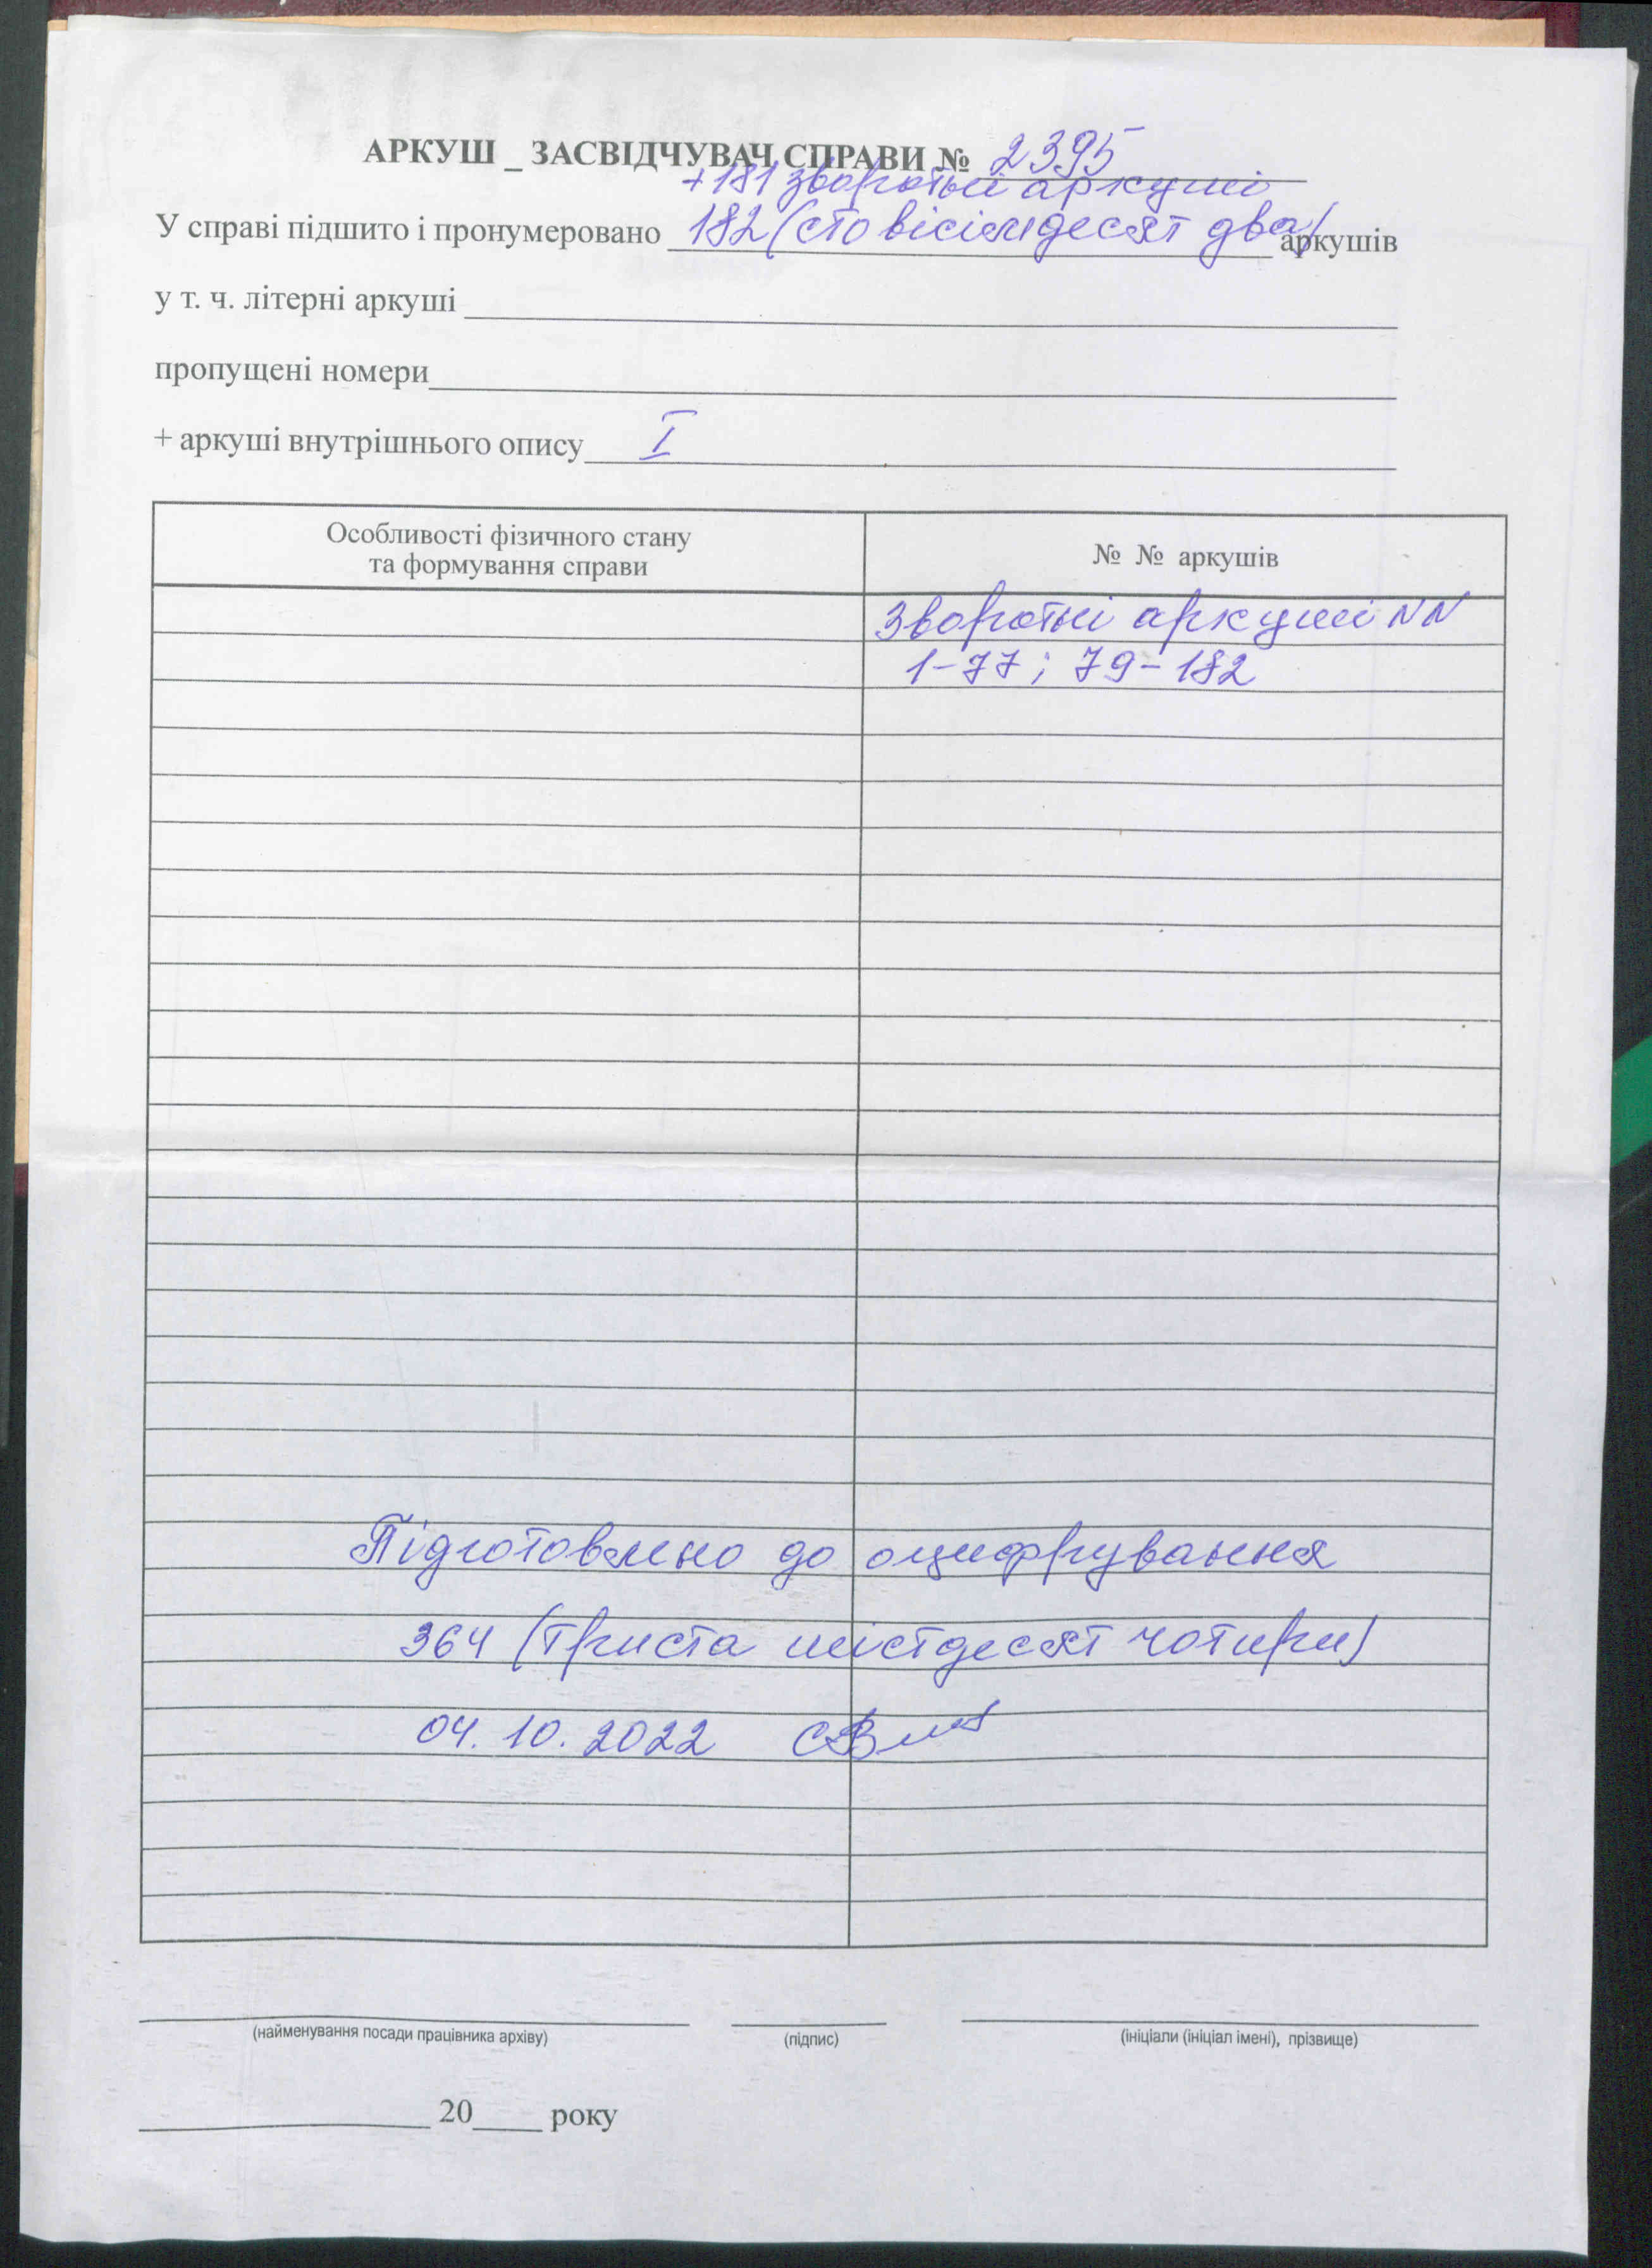 АРКУШ _ ЗАСВІДЧУВАЧ СПРАВИ № 2395
+181 зворотні аркуші
У справі підшито і пронумеровано 182 (сто вісімдесят два) аркушів
у т. ч. літерні аркуші
пропущені номери
+ аркуші внутрішнього опису I
Особливості фізичного стану
та формування справи
№ № аркушів
Зворотні аркуші NN
1-77; 79-182
Підготовлено до оцифрування
364 (триста шістдесят чотири)
04.10.2022
(найменування посади працівника архіву) (підпис) (ініціали (ініціал імені), прізвище)
20 року